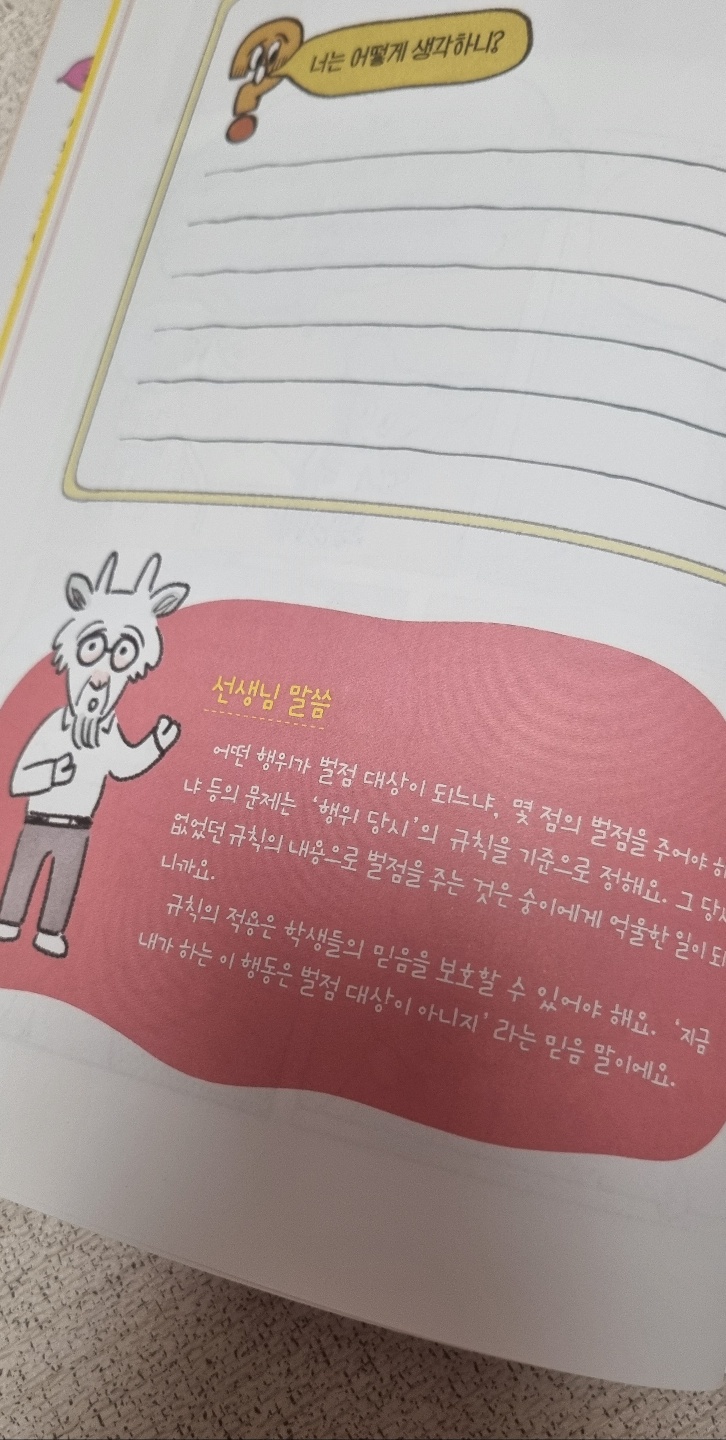 너는 어떻게 생각하니?
선생님 말씀
어떤 행위가 벌점 대상이 되느냐, 몇 점의 벌점을 주어야 하
냐 등의 문제는 '행위 당시'의 규칙을 기준으로 정해요. 그 당시
없었던 규칙의 내용으로 벌점을 주는 것은 숭이에게 억울한 일이 되
니까요.
규칙의 적용은 학생들의 믿음을 보호할 수 있어야 해요. '지금
내가 하는 이 행동은 벌점 대상이 아니지' 라는 믿음 말이에요.